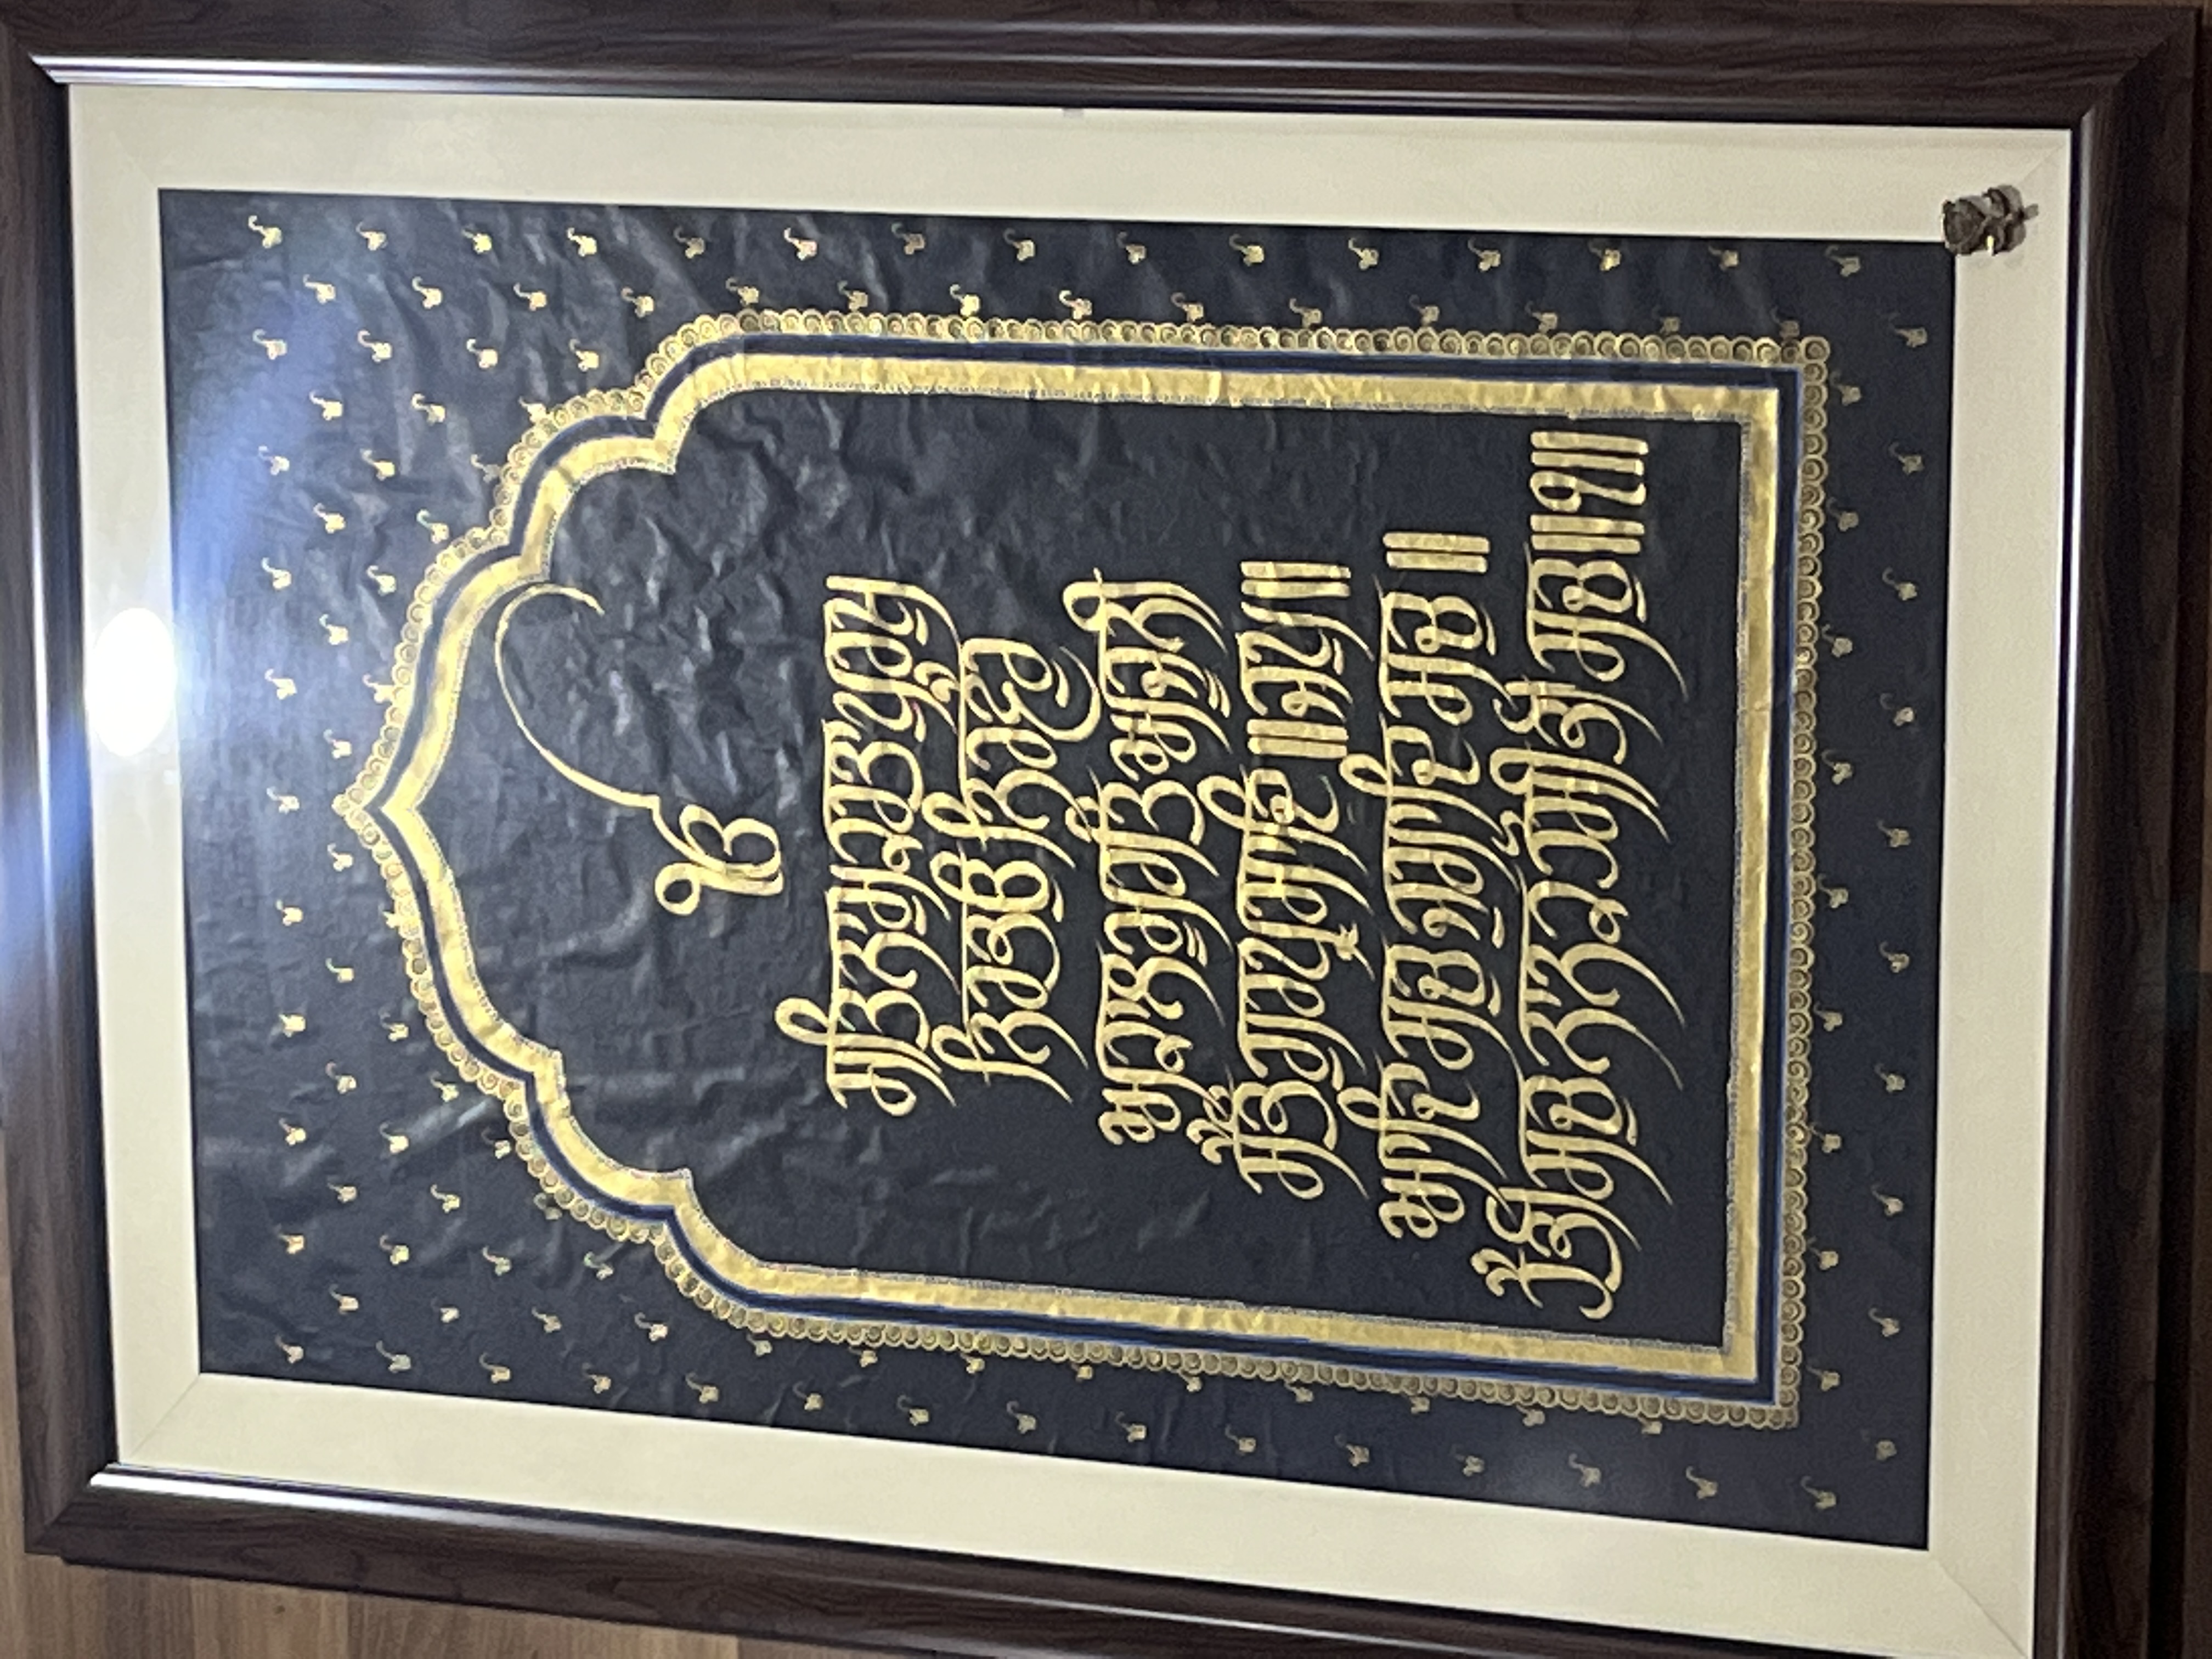 ੴ
ਸਤਿਨਾਮੁਕਰਤਾਪੁਰਖੁ
ਨਿਰਭਉ ਨਿਰਵੈਰੁ
ਅਕਾਲਮੂਰਤਿਅਜੂਨੀ
ਸੈਭੰਗੁਰਪ੍ਰਸਾਦਿ॥ਜਪੁ॥
ਆਦਿ ਸਚੁ ਜੁਗਾਦਿ ਸਚੁ ॥
ਹੈਭੀ ਸਚੁ ਨਾਨਕ ਹੋਸੀ ਭੀ ਸਚੁ॥੧॥